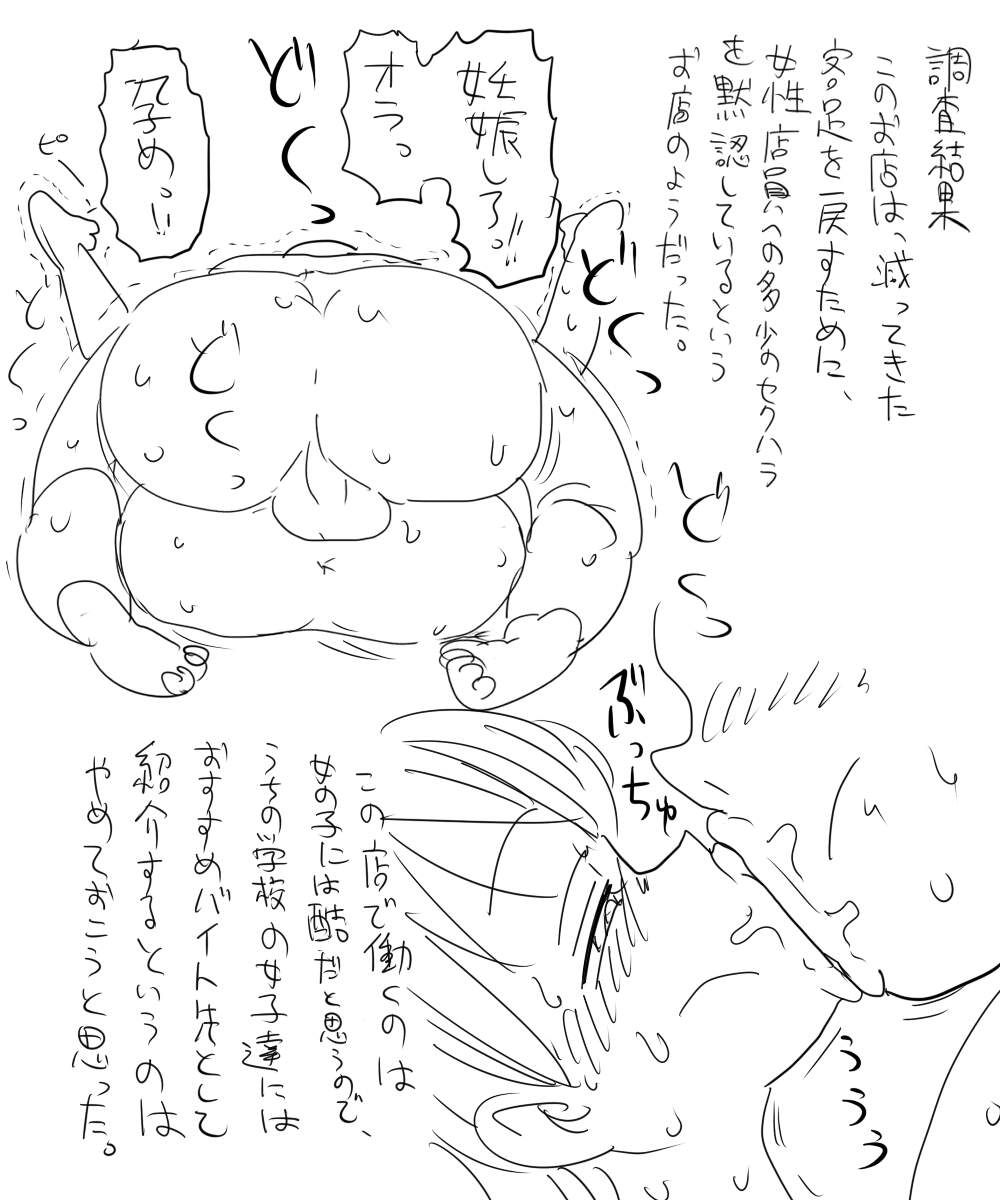 調査結果
このお店は、減ってきた
客足を戻すために、
女性店員への多少のセクハラ
を黙認しているという
お店のようだった。
妊娠しろっ!!
オラっ
孕めっ!!
ど
ピ
ど
ど
ど
ど
ぶっちゅ
ううう
この店で働くのは
女の子には酷だと思うので、
うちの学校の女子達には
おすすめバイト先として
紹介するというのは
やめておこうと思った。